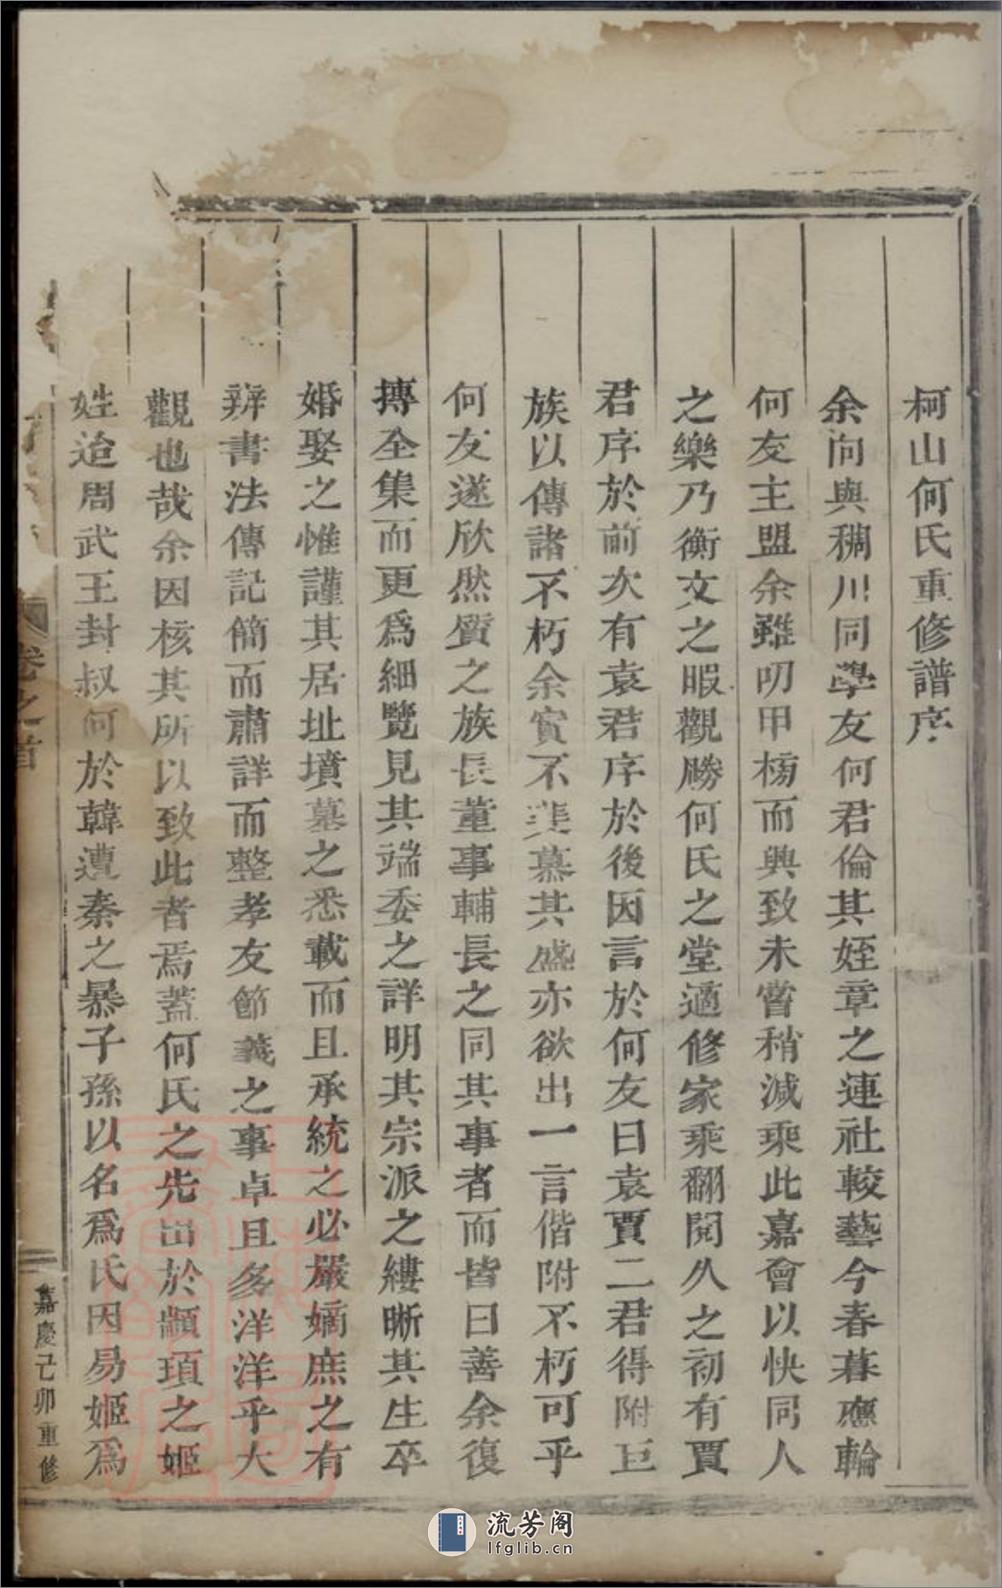 柯山何氏重修譜序
余向與稠川同學友何君倫其姪章之連社較藝今春暮應輪
何友主盟余雖叨甲榜而興致未嘗稍減乘此嘉會以快同人
之樂乃衡文之暇觀勝何氏之堂適修家乘翻閱久之初有賈
君序於前次有袁君序於後因言於何友曰袁賈二君得附巨
族以傳諸不朽余實不斐慕其盛亦欲出一言偕附不朽可乎
何友遂欣然質之族長董事輔長之同其事者而皆曰善余復
摶全集而更爲細覽見其端委之詳明其宗派之縷晰其生卒
婚娶之惟謹其居址墳墓之悉載而且承統之必嚴嫡庶之有
辨書法傳記簡而肅詳而整孝友節義之事卓且多洋洋乎大
觀也哉余因核其所以致此者焉蓋何氏之先出於顓頊之姬
姓迨周武王封叔何於韓遭秦之暴子孫以名爲氏因易姬爲
卷之首
嘉慶己卯重修
流芳阁
lfglib.cn